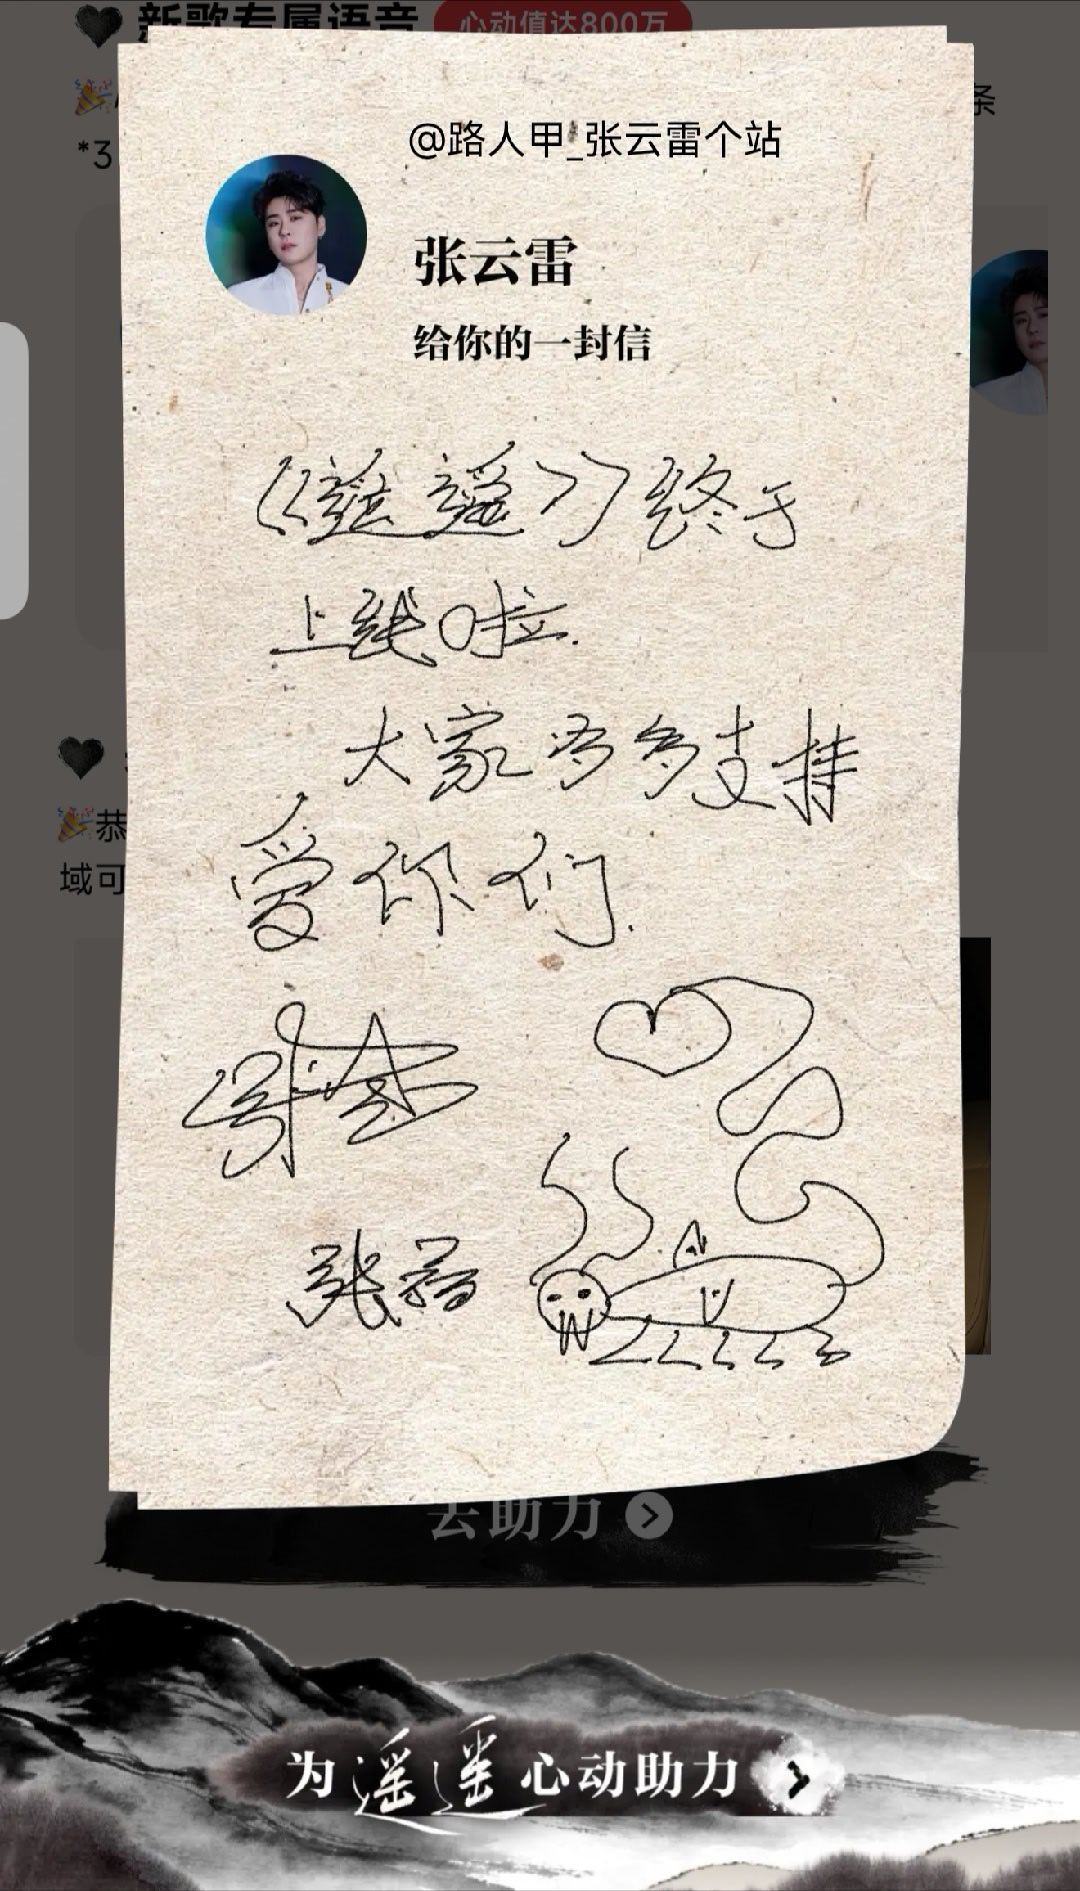 新歌专属语音
心动值达800万
条
*3
@路人甲_张云雷个站
张云雷
给你的一封信
《遥遥》终于
上线啦.
大家多多支持
爱你们.
恭
域可
去助力
为遥遥心动助力